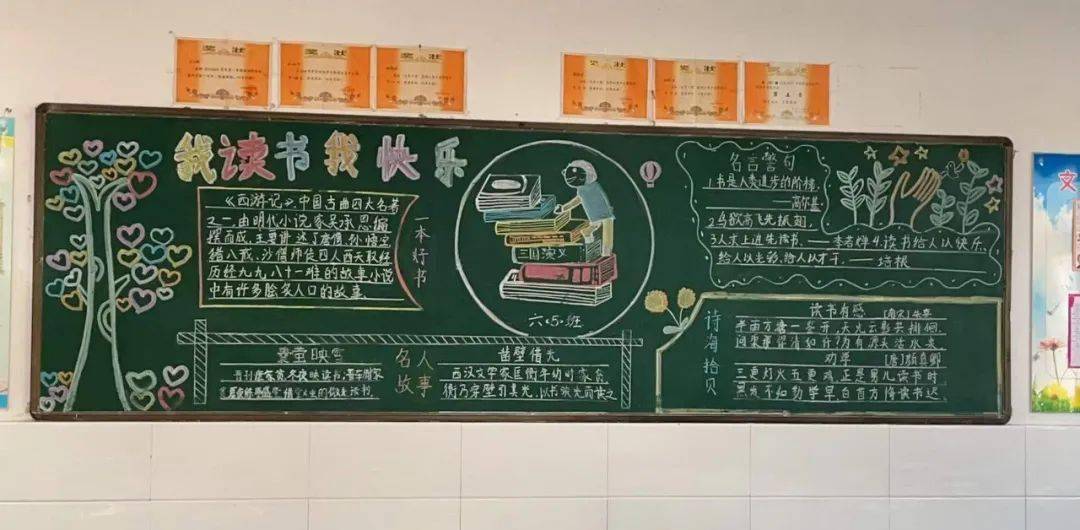 奖状
奖状
奖状
奖状
奖状
奖状
我读书我快乐
《西游记》,中国古典四大名著
之一由明代小说家吴承恩编
撰而成,主要讲述了唐僧,孙悟空
猪八戒,沙僧师徒四人西天取经
历经九九八十一难的故事小说
中有许多脍炙人口的故事.
一本好书
三国演义
六<5>班
名言警句
1.书是人类进步的阶梯.
——高尔基
2.鸟欲高飞先振翅,
3.人求上进先读书.——李若禅 4.读书给人以快乐,
给人以光彩,给人以才干.——培根
名人故事
映雪
凿壁借光
西汉文学家匡衡年幼时家贫
衡乃穿壁引其光,以书映光而读之
诗海拾贝
读书有感 [南宋]朱熹
半亩方塘一鉴开,天光云影共徘徊.
问渠那得清如许?为有源头活水来
劝学 [唐]颜真卿
三更灯火五更鸡,正是男儿读书时
黑发不知勤学早,白首方悔读书迟.
文